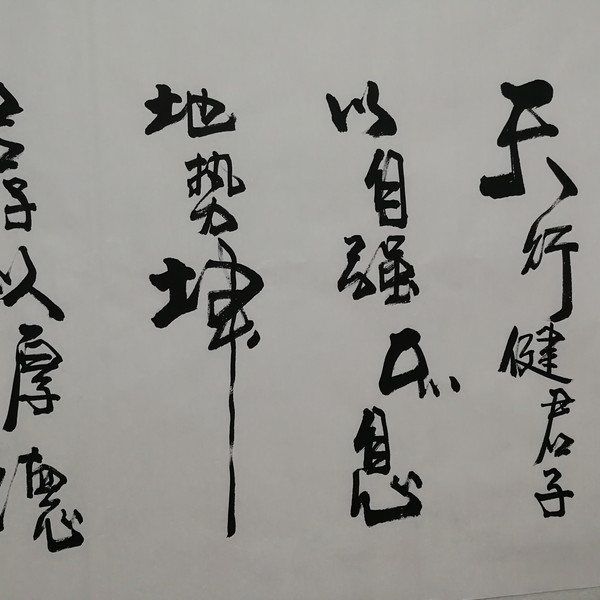 天行健君子
以自强不息
地势坤
君子以厚德